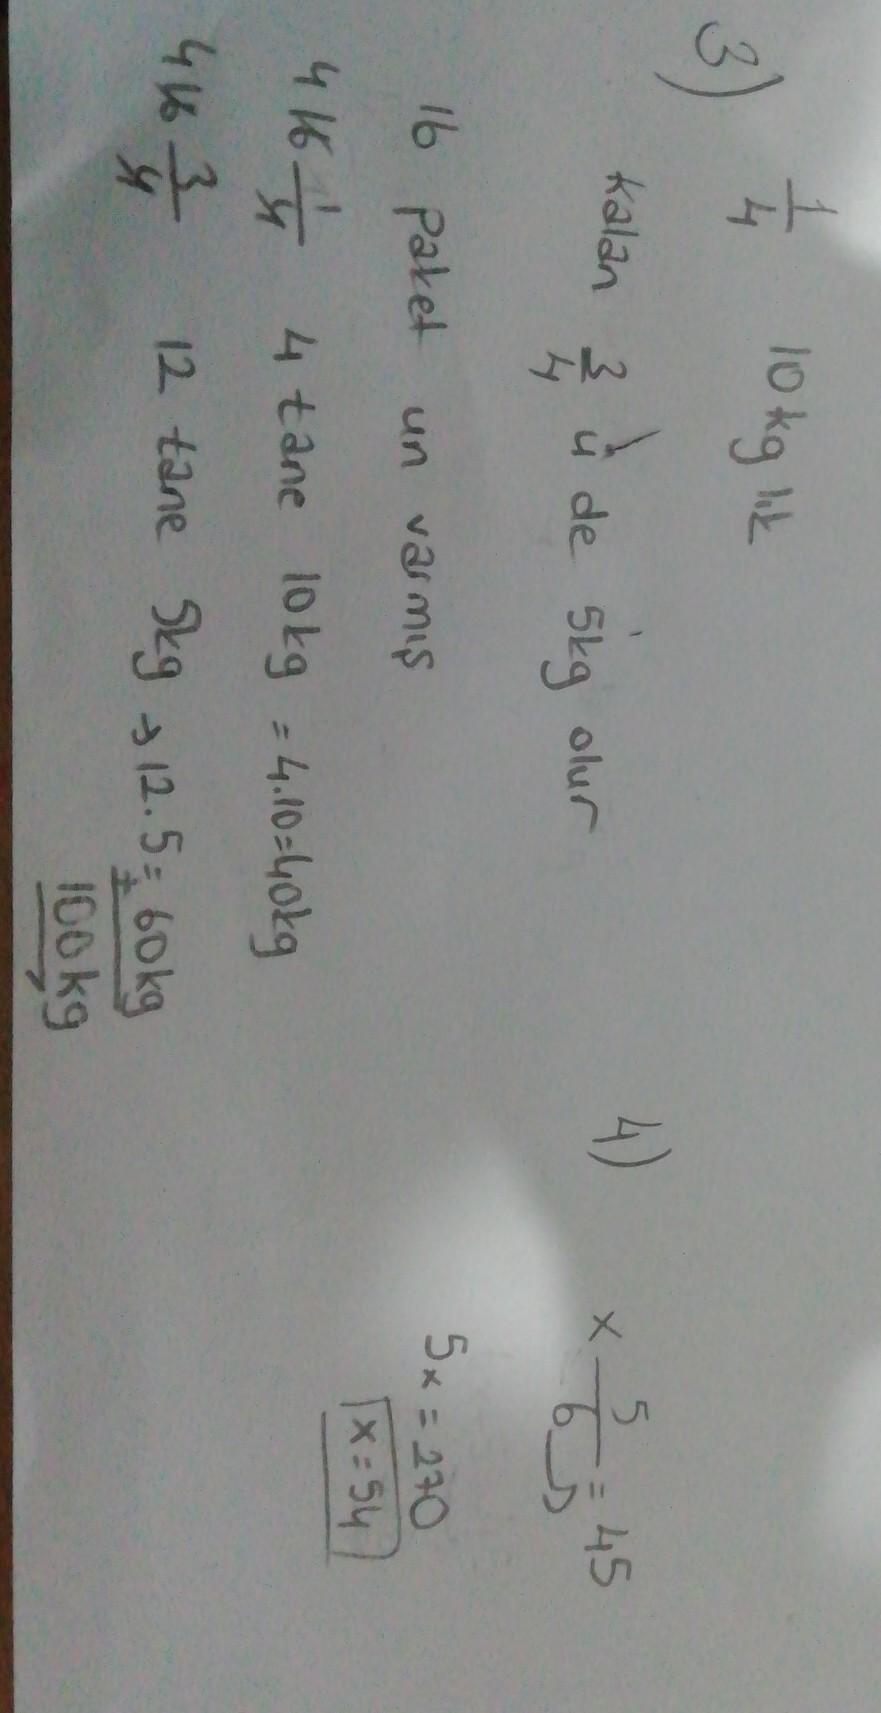 3) 1/4 10kg lık
kalan 3/4 ü de 5kg olur
16 paket un varmış
4 16 1/4 4 tane 10kg = 4.10=40kg
4 16 3/4 12 tane 5kg → 12.5= 60kg
+
100kg
4) x 5/6 = 45
5x = 270
x = 54